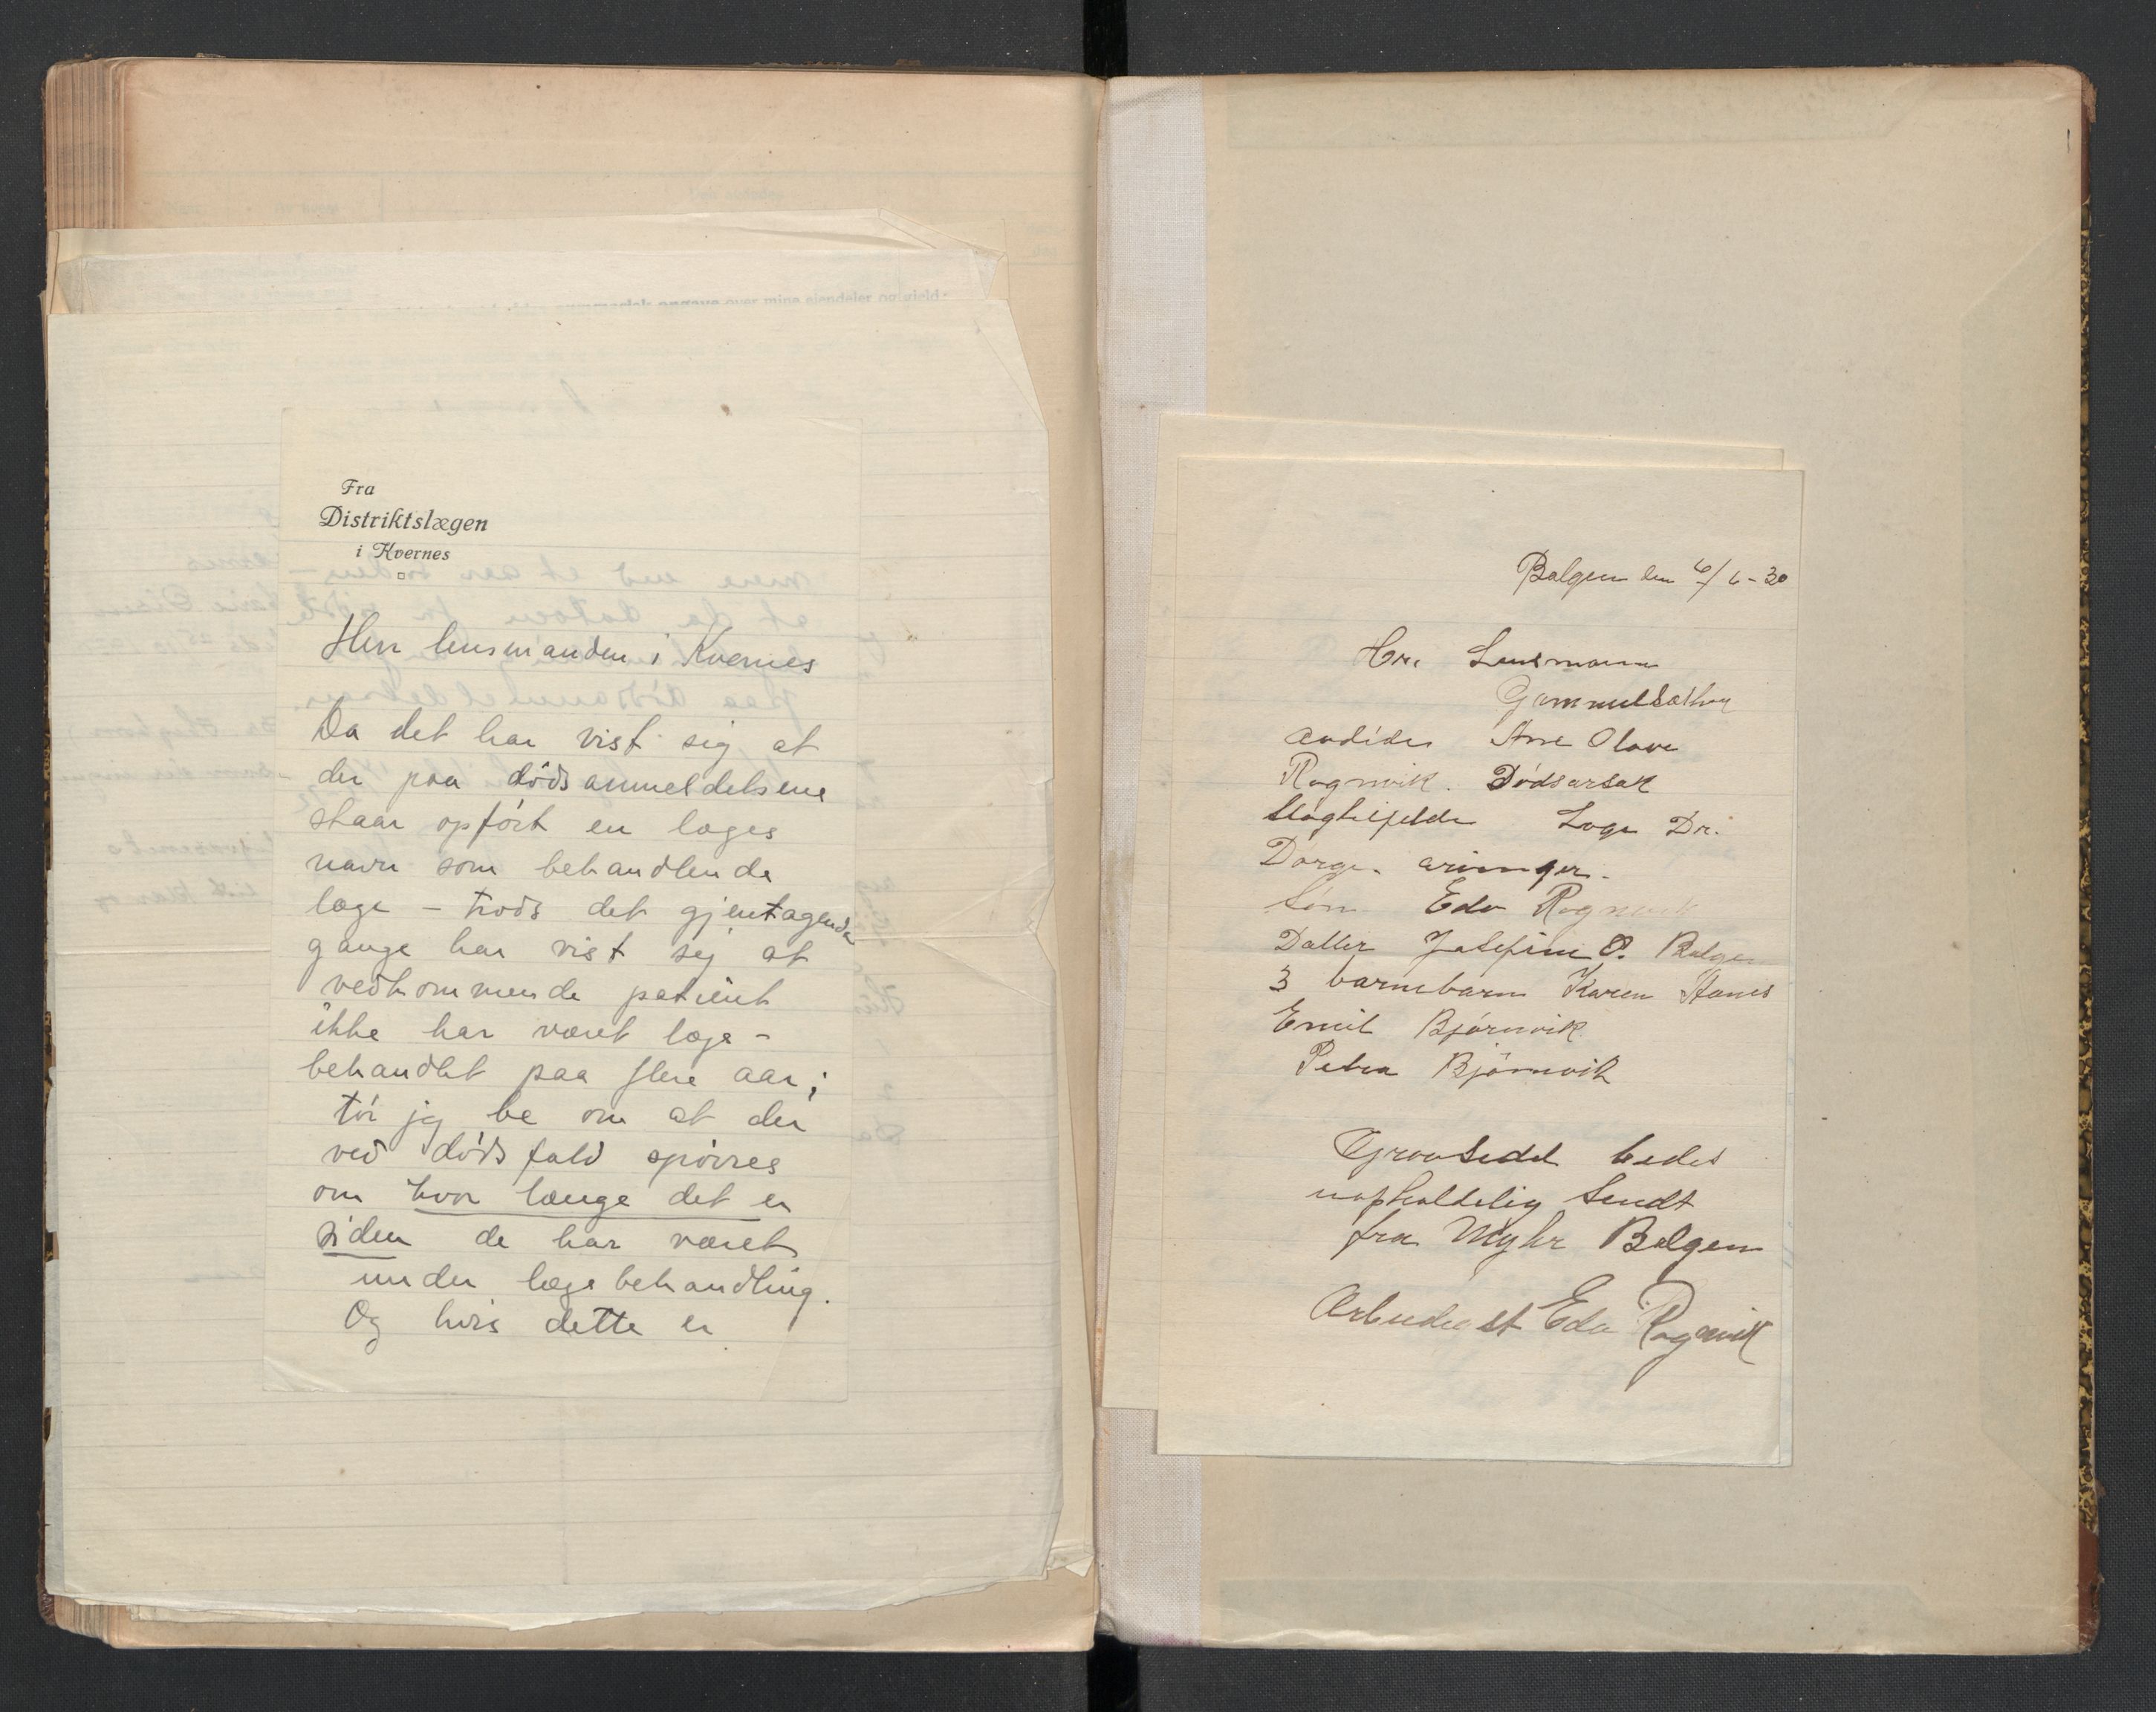 Fra
Distriktslægen
i Kvernes
Herr lensmanden i Kvernes
Da det har vist sig at
der paa dødsanmeldelsene
staar opført en læges
navn som behandlende
læge – trods det gjentagende
gange har vist sig at
vedkommende patient
ikke har været læge-
behandlet paa flere aar;
tør jeg be om at der
ved dødsfald spørres
om hvor længe det er
siden de har været
under lægebehandling.
Og hvis dette er
Bolgen den 6/6-30
Hr. Lensmann
Gammelsæther
Avdøde Ane Olave
Rognvik. Dødsarsak
Slagtilfelde Læge Dr.
Dorge. arvinger.
Søn Edv Rognvik
Datter Josefine O. Bolgen
3 barnebarn Karen Stanes
Emil Bjørnvik
Petra Bjørnvik
Gravsedel bedes
uopholdelig sendt
fra Myhr Bolgen
Ærbødigst Edv Rognvik